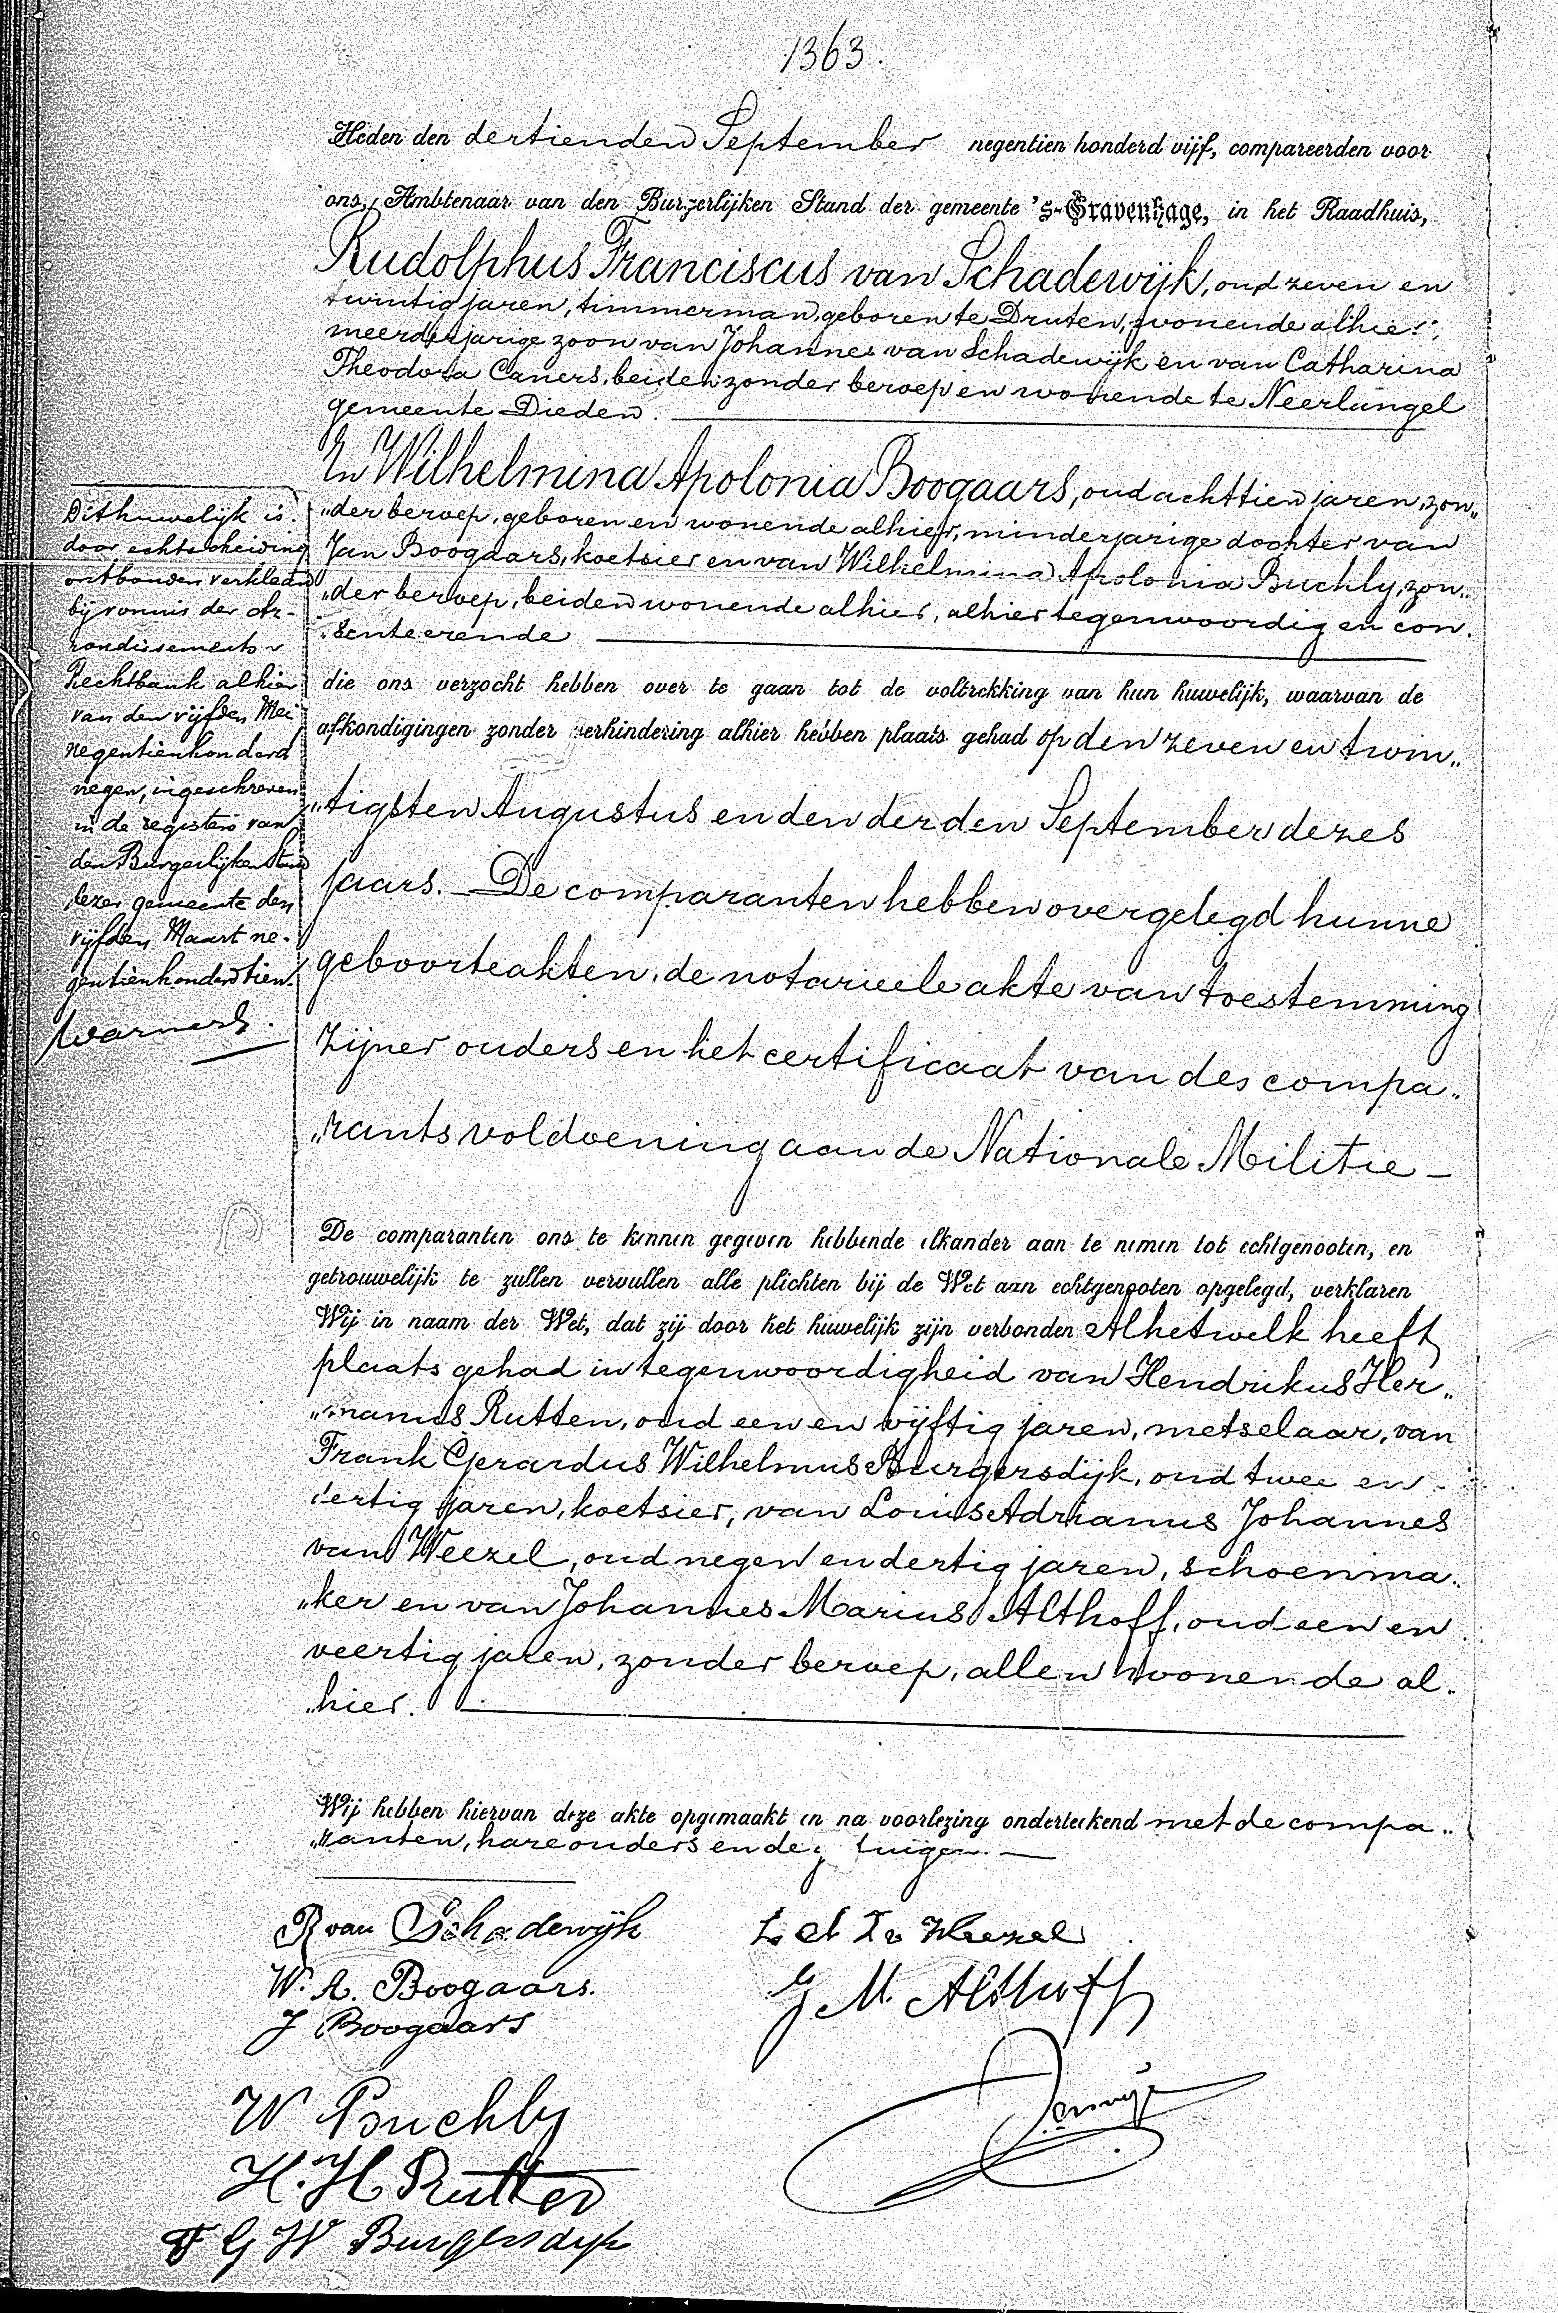 1363.
Heden den dertienden September negentien honderd vijf, compareerden voor
ons, Ambtenaar van den Burgerlijken Stand der gemeente 's-Gravenhage, in het Raadhuis,
Rudolphus Franciscus van Schadewijk, oud zeven en
twintig jaren, timmerman, geboren te Druten, wonende alhier,
meerderjarige zoon van Johannes van Schadewijk en van Catharina
Theodora Caners, beiden zonder beroep en wonende te Neerlangel
gemeente Dieden.
En Wilhelmina Apolonia Boogaars, oud achttien jaren, zon„
„der beroep, geboren en wonende alhier, minderjarige dochter van
Jan Boogaars, koetsier en van Wilhelmina Apolonia Buchly, zon„
„der beroep, beiden wonende alhier, alhier tegenwoordig en con„
„senteerende
die ons verzocht hebben over te gaan tot de voltrekking van hun huwelijk, waarvan de
afkondigingen zonder verhindering alhier hebben plaats gehad op den zeven en twin„
„tigsten Augustus en den derden September dezes
jaars. De comparanten hebben overgelegd hunne
geboorteakten, de notarieele akte van toestemming
zijner ouders en het certificaat van des compa„
„rants voldoening aan de Nationale Militie
De comparanten ons te kennen gegeven hebbende elkander aan te nemen tot echtgenooten, en
getrouwelijk te zullen vervullen alle plichten bij de Wet aan echtgenooten opgelegd, verklaren
Wij in naam der Wet, dat zij door het huwelijk zijn verbonden Alhetwelk heeft
plaats gehad in tegenwoordigheid van Hendrikus Her„
„manus Rutten, oud een en vijftig jaren, metselaar, van
Frank Gerardus Wilhelmus Burgersdijk, oud twee en
dertig jaren, koetsier, van Louis Adrianus Johannes
van Weezel, oud negen en dertig jaren, schoenma„
„ker en van Johannes Marius Althoff, oud een en
veertig jaren, zonder beroep, allen wonende al„
„hier.
Wij hebben hiervan deze akte opgemaakt en na voorlezing onderteekend met de compa„
„ranten, hare ouders en de getuigen.
Dit huwelijk is
door echtscheiding
ontbonden verklaard
bij vonnis der Ar-
rondissements
Rechtbank alhier
van den vijfden Mei
negentienhonderd
negen, ingeschreven
in de registers van
den Burgerlijken Stand
dezer gemeente den
vijfden Maart ne-
gentienhonderd tien.
R van Schadewijk
W. A. Boogaars.
J Boogaars
W Buchly
H. H Rutten
F G W Burgersdijk
L A J v Weezel
J M Althoff